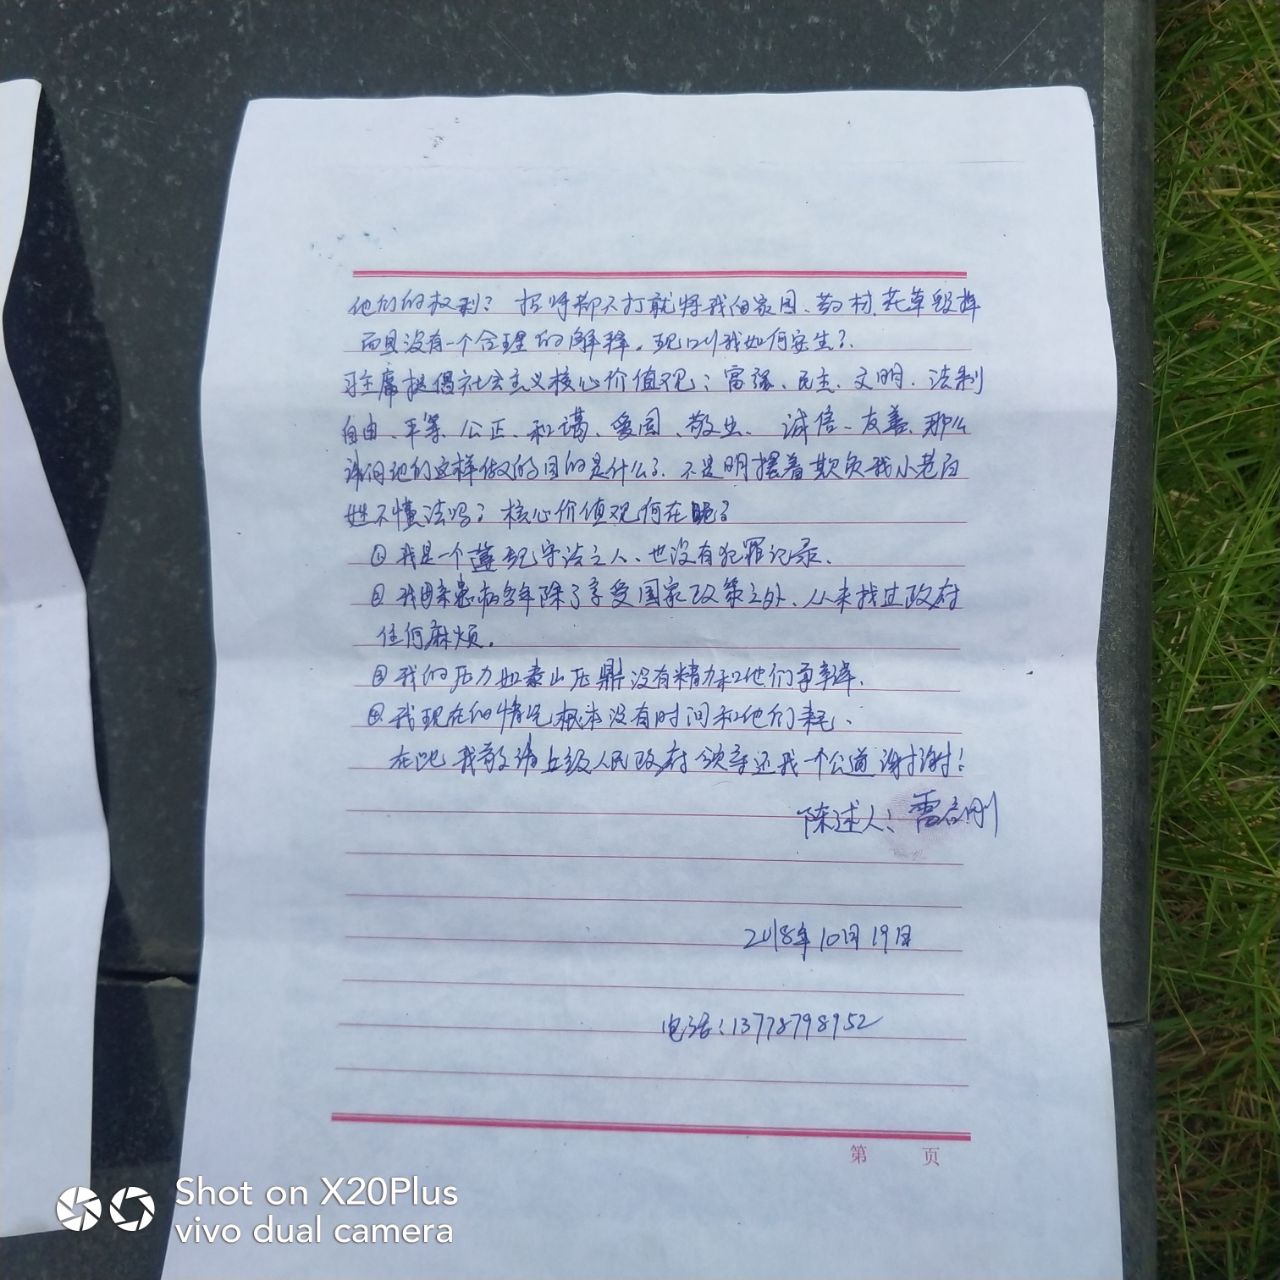 他们的权利？招呼都不打就将我的家园、药材、花草毁掉
而且没有一个合理的解释。现叫我如何安生？
习主席提倡社会主义核心价值观：富强、民主、文明、法制
自由、平等、公正、和谐、爱国、敬业、诚信、友善、那么
请问他们这样做的目的是什么？不是明摆着欺负我小老百
姓不懂法吗？核心价值观何在呢？
①我是一个遵纪守法之人、也没有犯罪记录、
②我 患病 除了享受国家政策之外、从来找过政府
任何麻烦。
③我的压力如泰山压鼎没有精力和他们再争
④我现在的情况根本没有时间和他们耗、
在此我敬请上级人民政府领导还我一个公道谢谢！
陈述人：雷 刚
2018年10月19日
电话：13778798952
第 页
Shot on X20Plus
vivo dual camera